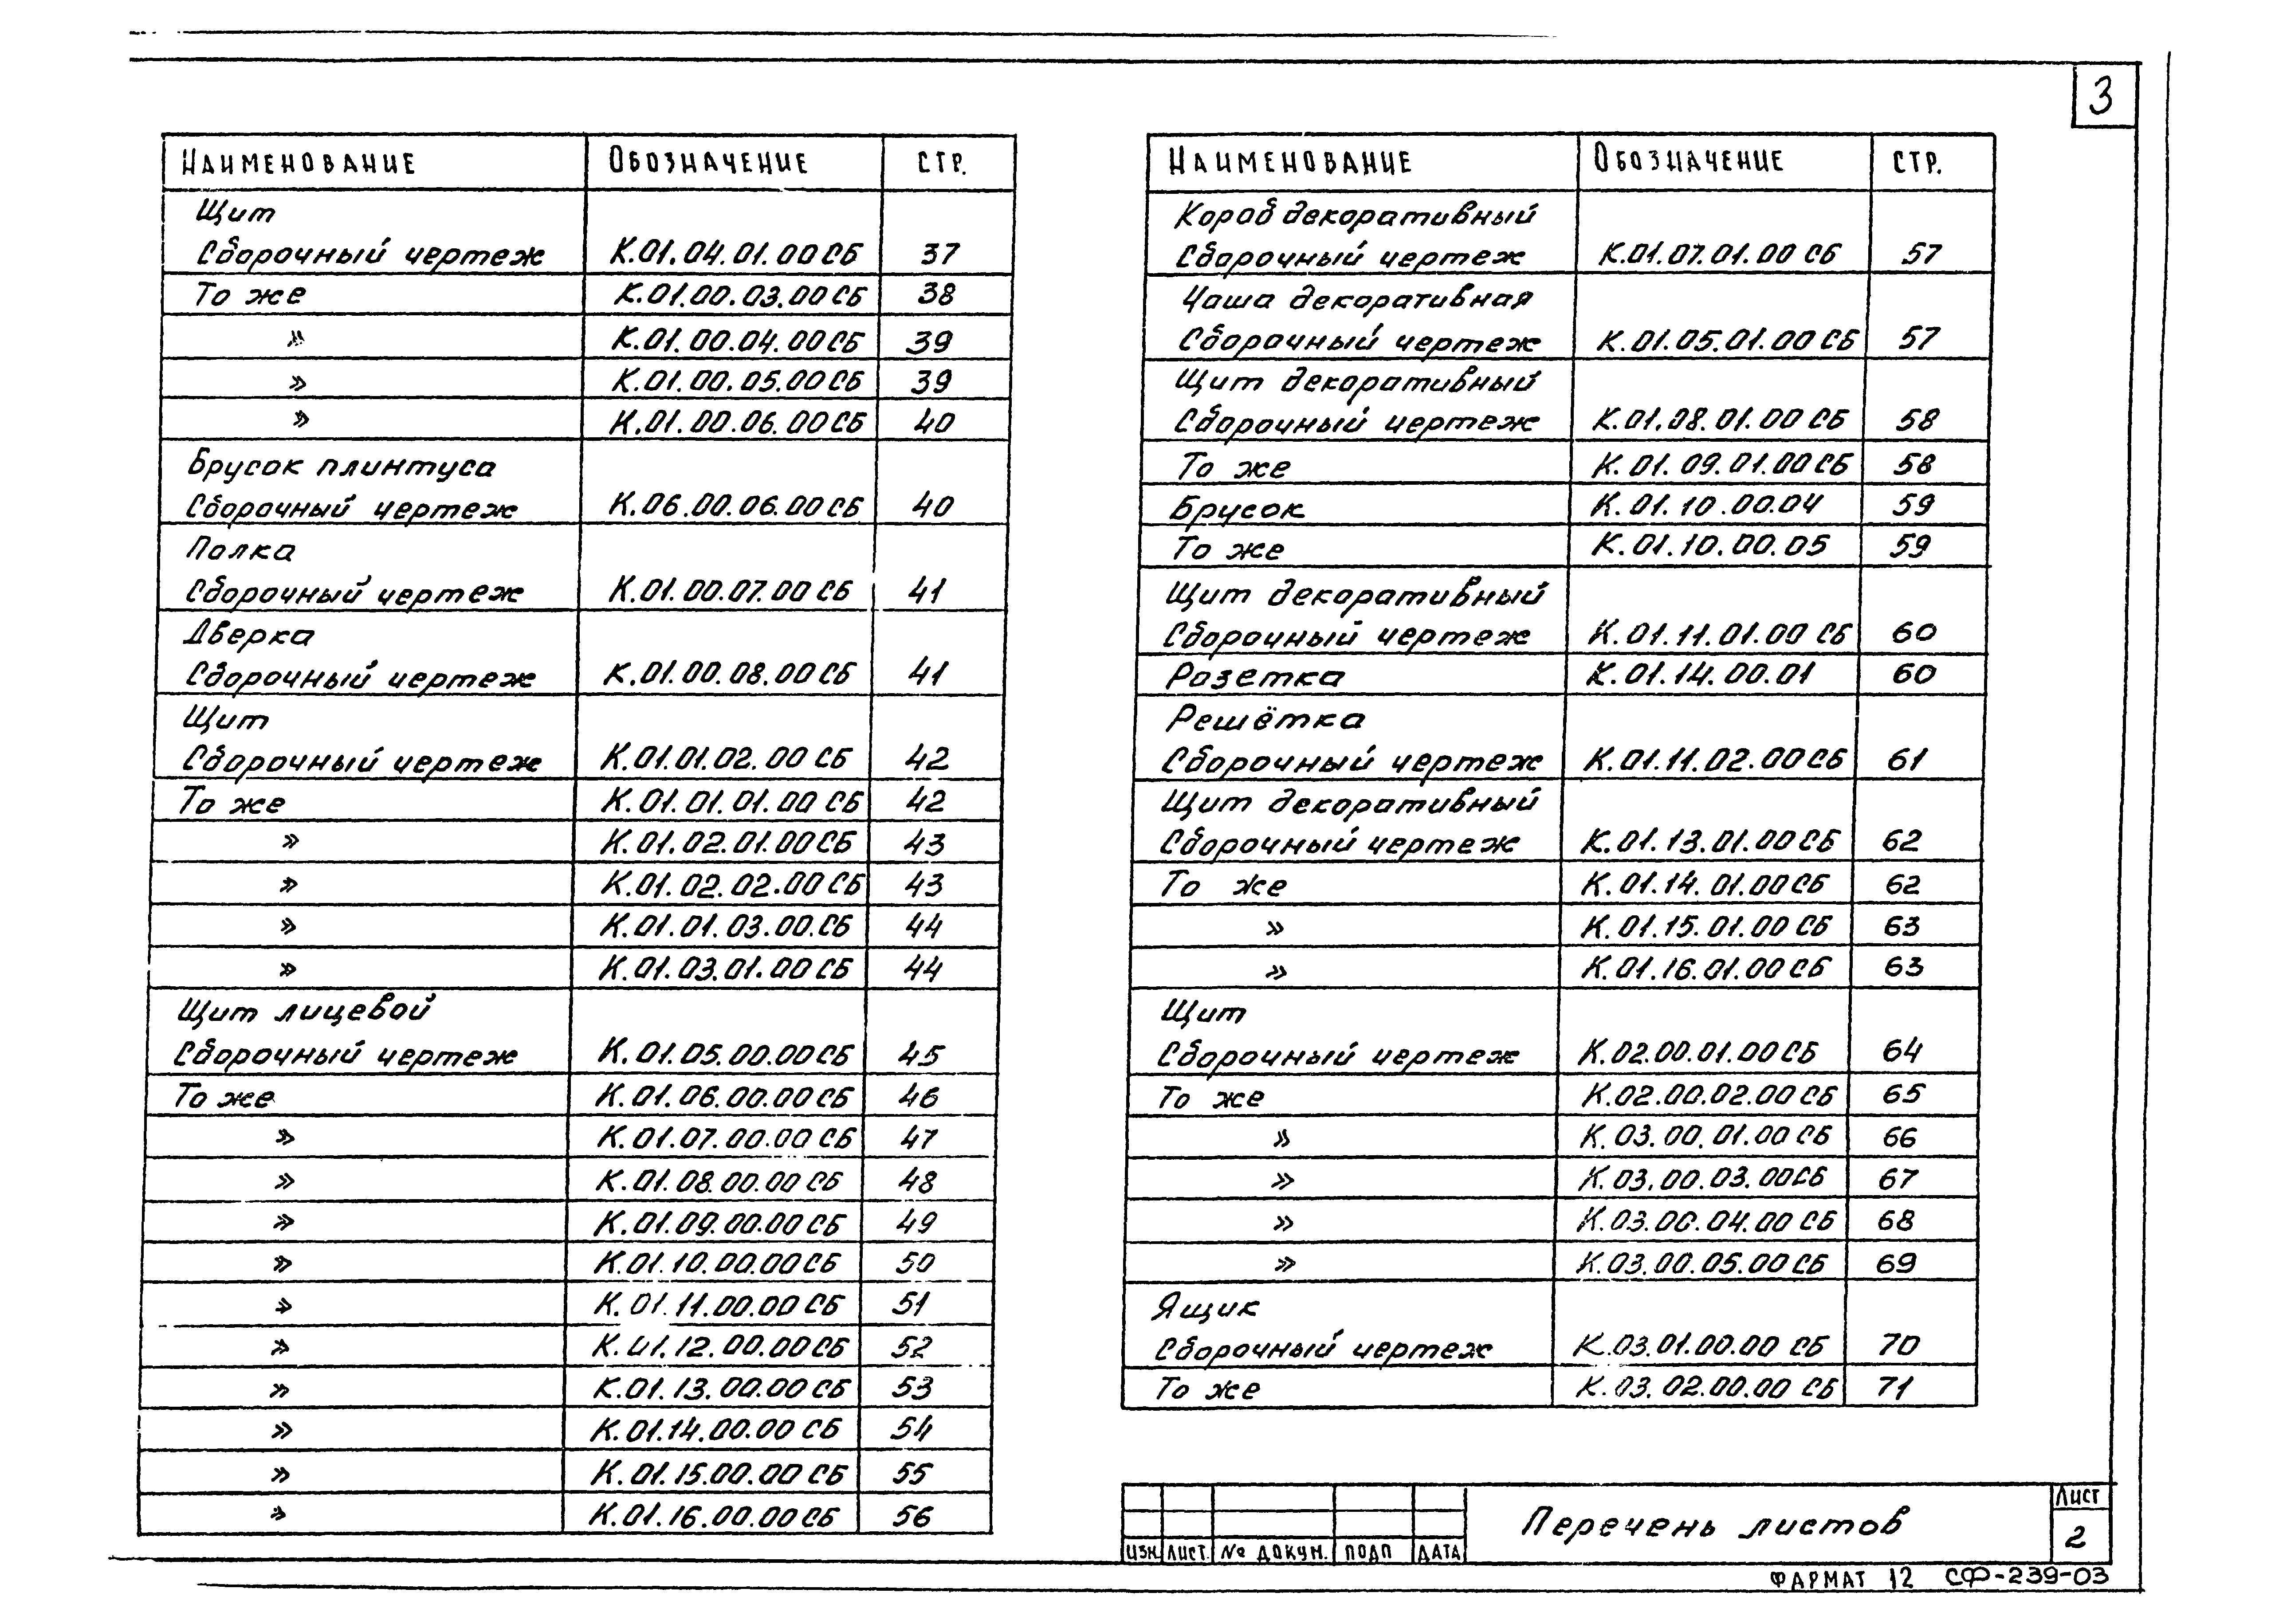 3
Наименование Обозначение стр.
Щит
Сборочный чертеж К.01.04.01.00 СБ 37
То же К.01.00.03.00 СБ 38
» К.01.00.04.00 СБ 39
» К.01.00.05.00 СБ 39
» К.01.00.06.00 СБ 40
Брусок плинтуса
Сборочный чертеж К.06.00.06.00 СБ 40
Полка
Сборочный чертеж К.01.00.07.00 СБ 41
Дверка
Сборочный чертеж К.01.00.08.00 СБ 41
Щит
Сборочный чертеж К.01.01.02.00 СБ 42
То же К.01.01.01.00 СБ 42
» К.01.02.01.00 СБ 43
» К.01.02.02.00 СБ 43
» К.01.01.03.00.СБ 44
» К.01.03.01.00 СБ 44
Щит лицевой
Сборочный чертеж К.01.05.00.00 СБ 45
То же К.01.06.00.00 СБ 46
» К.01.07.00.00 СБ 47
» К.01.08.00.00 СБ 48
» К.01.09.00.00 СБ 49
» К.01.10.00.00 СБ 50
» К.01.11.00.00 СБ 51
» К.01.12.00.00 СБ 52
» К.01.13.00.00 СБ 53
» К.01.14.00.00 СБ 54
» К.01.15.00.00 СБ 55
» К.01.16.00.00 СБ 56
Наименование Обозначение стр.
Короб декоративный
Сборочный чертеж К.01.07.01.00 СБ 57
Чаша декоративная
Сборочный чертеж К.01.05.01.00 СБ 57
Щит декоративный
Сборочный чертеж К.01.08.01.00 СБ 58
То же К.01.09.01.00 СБ 58
Брусок К.01.10.00.04 59
То же К.01.10.00.05 59
Щит декоративный
Сборочный чертеж К.01.11.01.00 СБ 60
Розетка К.01.14.00.01 60
Решётка
Сборочный чертеж К.01.11.02.00 СБ 61
Щит декоративный
Сборочный чертеж К.01.13.01.00 СБ 62
То же К.01.14.01.00 СБ 62
» К.01.15.01.00 СБ 63
» К.01.16.01.00 СБ 63
Щит
Сборочный чертеж К.02.00.01.00 СБ 64
То же К.02.00.02.00 СБ 65
» К.03.00.01.00 СБ 66
» К.03.00.03.00 СБ 67
» К.03.00.04.00 СБ 68
» К.03.00.05.00 СБ 69
Ящик
Сборочный чертеж К.03.01.00.00 СБ 70
То же К.03.02.00.00 СБ 71
Перечень листов
Лист
2
изм. лист. № докум. подп дата
Формат 12 СФ-239-03